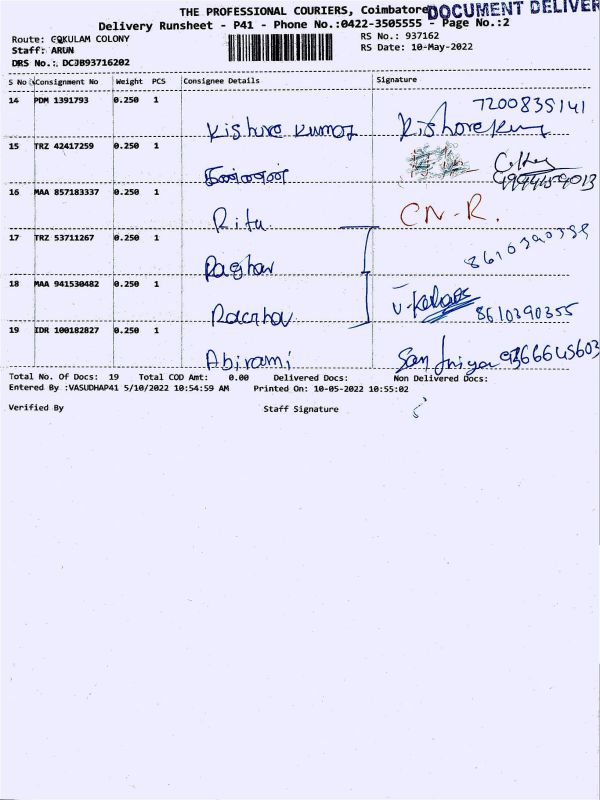 THE PROFESSIONAL COURIERS, Coimbatore
DOCUMENT DELIVER
Delivery Runsheet - P41 - Phone No.:0422-3505555 - Page No.:2
Route: GOKULAM COLONY
RS No.: 937162
Staff: ARUN
RS Date: 10-May-2022
DRS No.: DCJB93716202
S No Consignment No Weight PCS Consignee Details Signature
14 PDM 1391793 0.250 1 Kishore Kumar Kishorekum 7200835141
15 TRZ 42417259 0.250 1
16 MAA 857183337 0.250 1 Ritu CN-R.
17 TRZ 53711267 0.250 1 Raghav
18 MAA 941530482 0.250 1 8610390355
19 IDR 100182827 0.250 1 Abirami
Total No. Of Docs: 19 Total COD Amt: 0.00 Delivered Docs: Non Delivered Docs:
Entered By :VASUDHAP41 5/10/2022 10:54:59 AM Printed On: 10-05-2022 10:55:02
Verified By Staff Signature